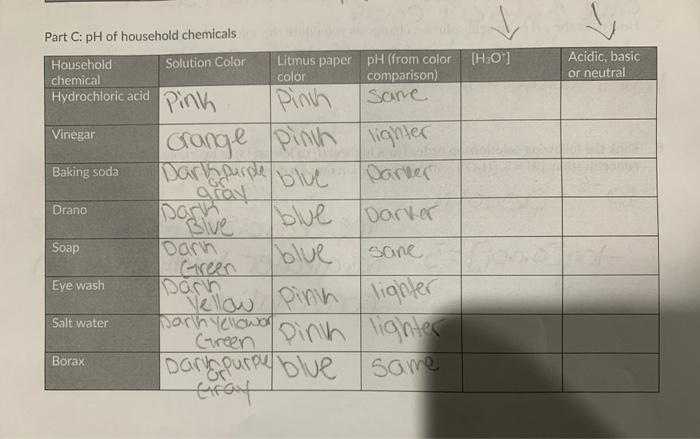 Part C: pH of household chemicals
Household chemical Solution Color Litmus paper color pH (from color comparison) [H3O+] Acidic, basic or neutral
Hydrochloric acid Pink Pink same
Vinegar orange pink lighter
Baking soda Dark purple or gray blue Darker
Drano Dark Blue blue Darker
Soap Dark Green blue same
Eye wash Dark Yellow pink lighter
Salt water Dark yellow or Green pink lighter
Borax Dark purple or Gray blue same